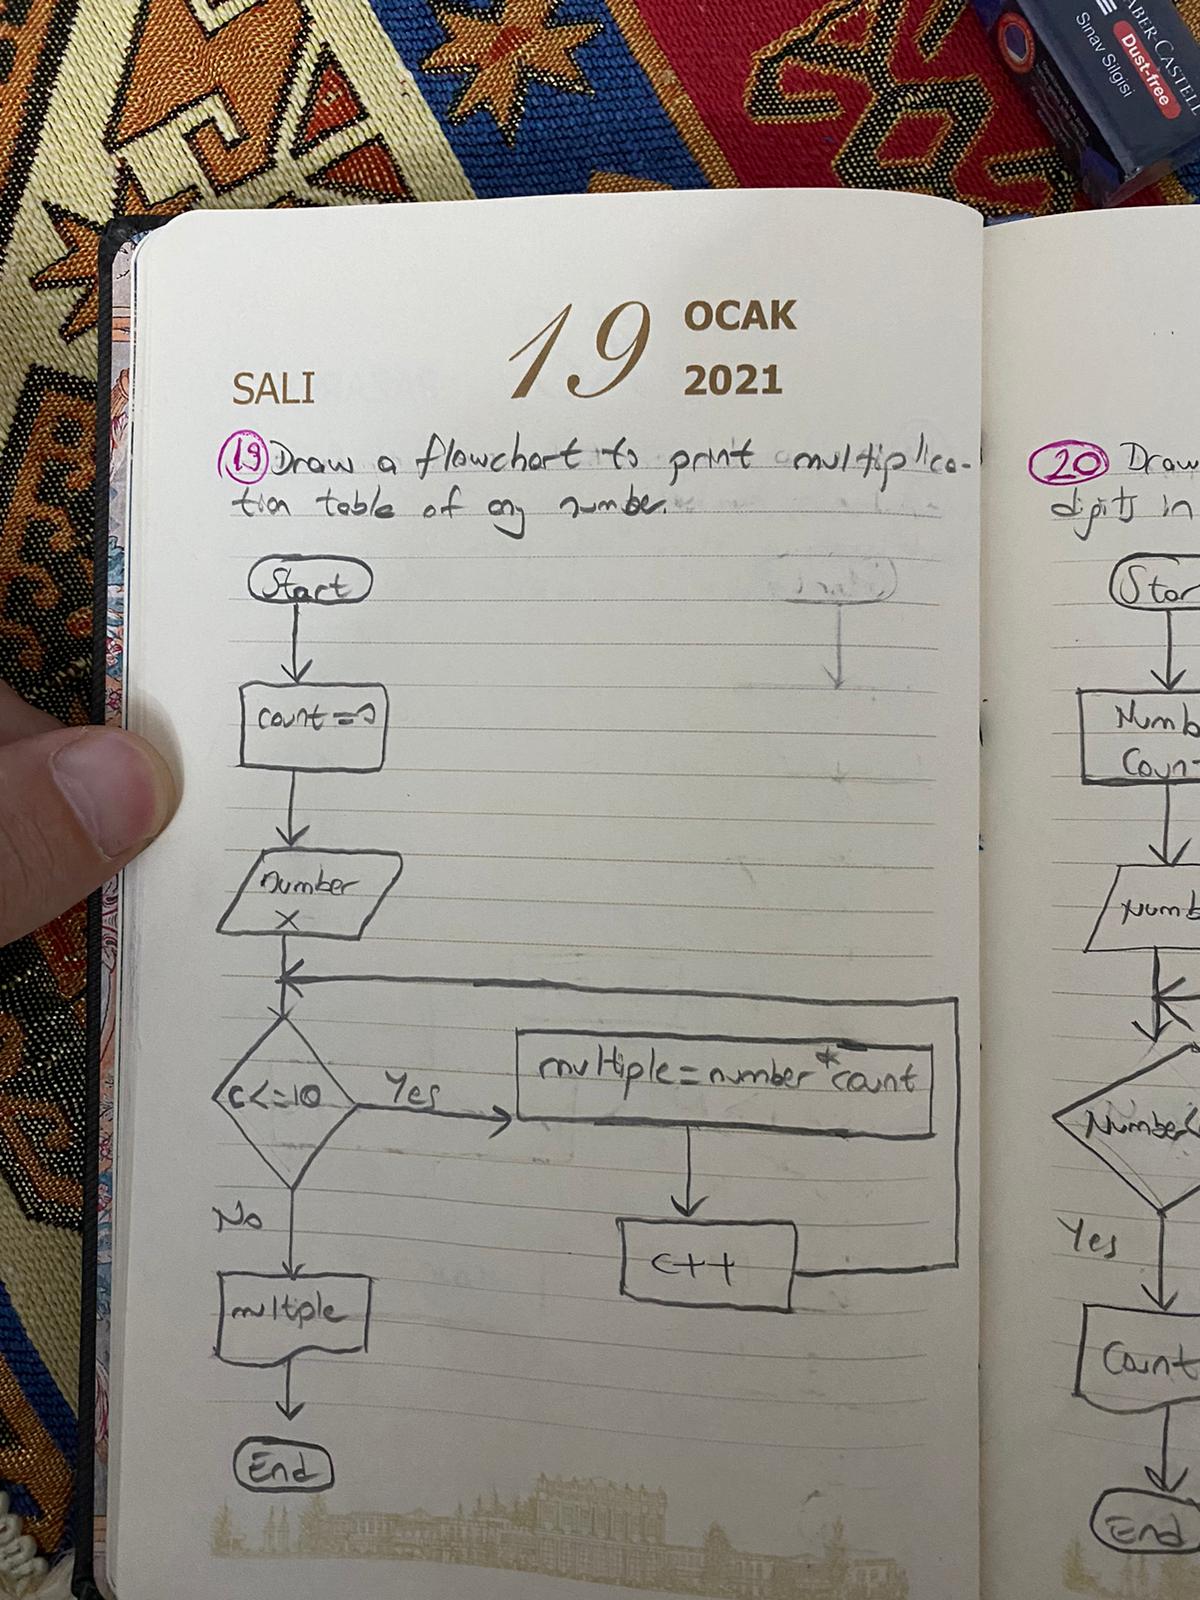 FABER-CASTELL
Dust-free
Sınav Silgisi
SALI
19
OCAK
2021
19 Draw a flowchart to print multiplica-
tion table of any number.
Start
count =0
number
X
c<=10
Yes
multiple=number*count
c++
No
multple
End
20 Draw
digits in
Star
Numb
Coun
Numb
Number<
Yes
Count
End